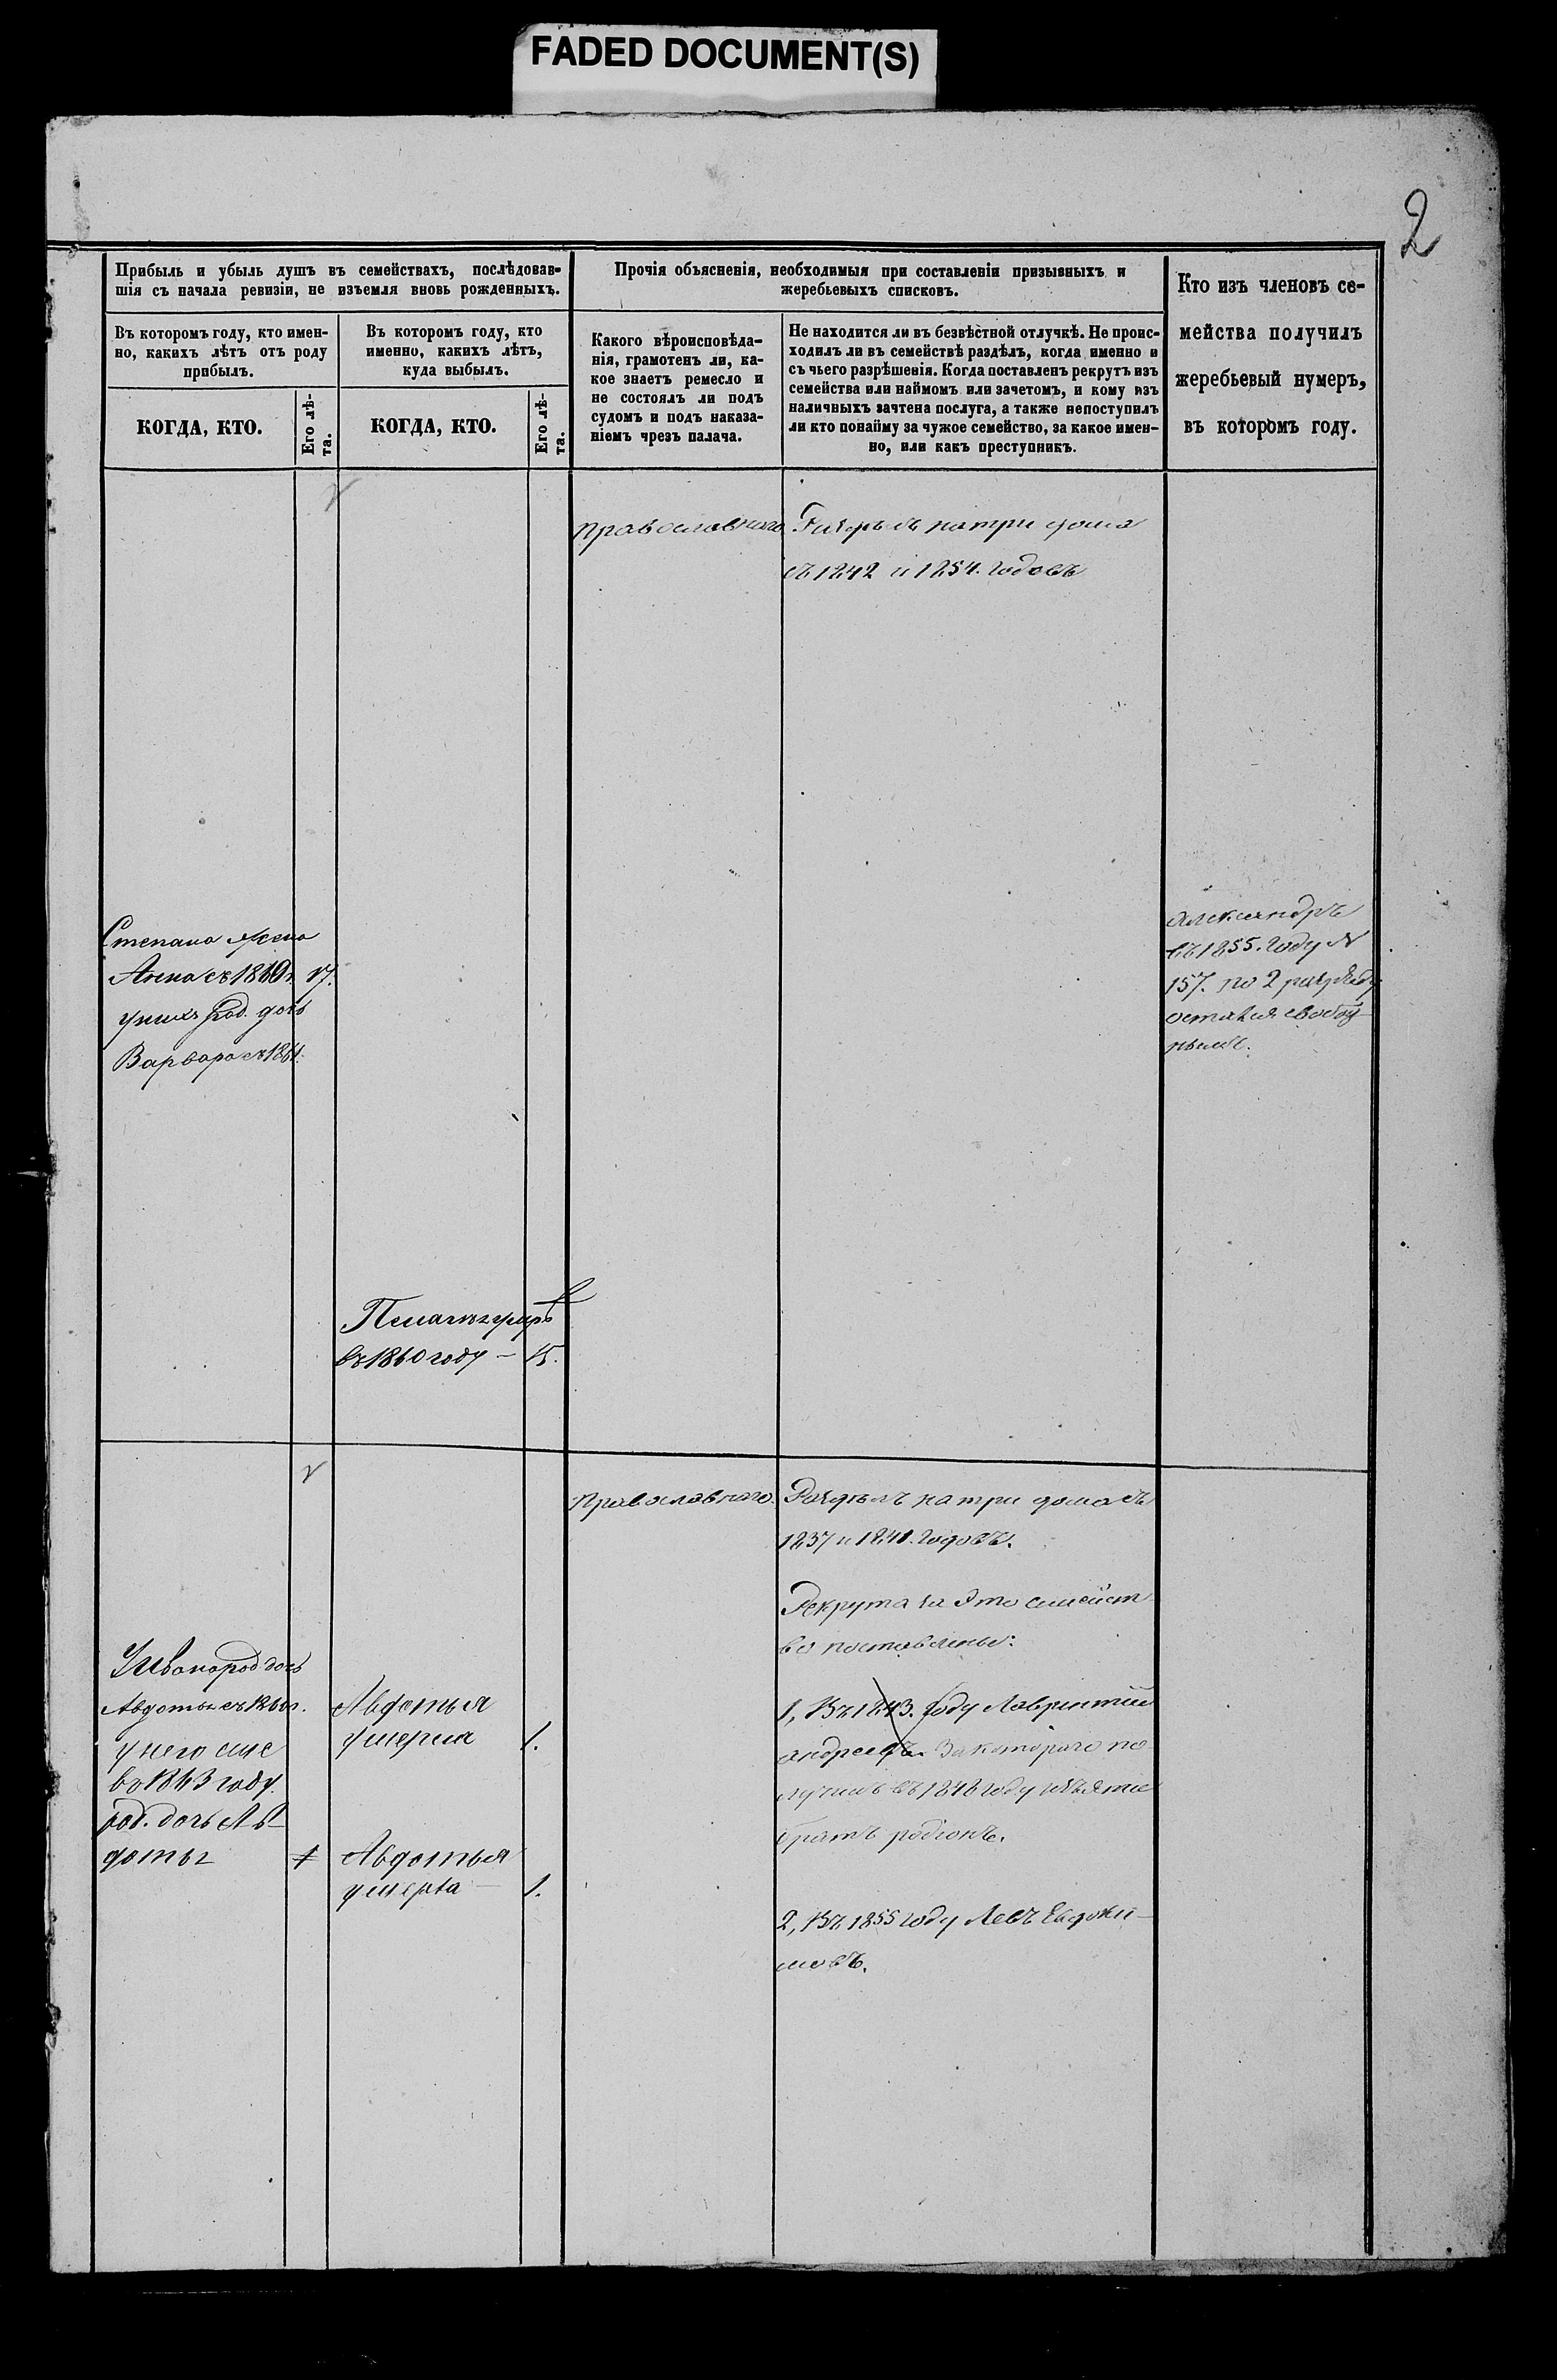 FADED DOCUMENT(S)
2
Прибыль и убыль душъ въ семействахъ, послѣдовав-
шія съ начала ревизіи, не изъемля вновь рожденныхъ.
Въ которомъ году, кто имен-
но, какихъ лѣтъ отъ роду
прибылъ.
КОГДА, КТО.
Его лѣ-
та.
Въ которомъ году, кто
именно, какихъ лѣтъ,
куда выбылъ.
КОГДА, КТО.
Его лѣ-
та.
Прочія объясненія, необходимыя при составленіи призывныхъ и
жеребьевыхъ списковъ.
Какого вѣроисповѣда-
нія, грамотенъ ли, ка-
кое знаетъ ремесло и
не состоялъ ли подъ
судомъ и подъ наказа-
ніемъ чрезъ палача.
Не находится ли въ безвѣстной отлучкѣ. Не проис-
ходилъ ли въ семействѣ раздѣлъ, когда именно и
съ чьего разрѣшенія. Когда поставленъ рекрутъ изъ
семейства или наймомъ или зачетомъ, и кому изъ
наличныхъ зачтена послуга, а также непоступилъ
ли кто понайму за чужое семейство, за какое имен-
но, или какъ преступникъ.
Кто изъ членовъ се-
мейства получилъ
жеребьевый нумеръ,
въ которомъ году.
православнаго
на три дома
съ 1842 и 1854. годовъ
Степана жена
Анна съ 1860г. 17.
у нихъ род. дочь
Варвара съ 1861.
Александръ
въ 1855. году №
157. по 2 разряду
остался свобод-
нымъ.
въ 1860 году — 15.
православнаго.
Раздѣлъ на три дома съ
1837 и 1841. годовъ.
Рекрута за это семейст
во поставлены:
У Ивана род. дочь
Авдотья съ 1860г.
у него еще
въ 1863 году
род. дочь Ав-
дотья
Авдотья
умерла 1.
Авдотья
умерла — 1.
1, Въ 1843. году Лаврентій
Андреевъ. За котораго по
лучилъ въ 1848 году изъятіе
братъ родіонъ.
2, Въ 1855 году Левъ Евдоки-
мовъ.